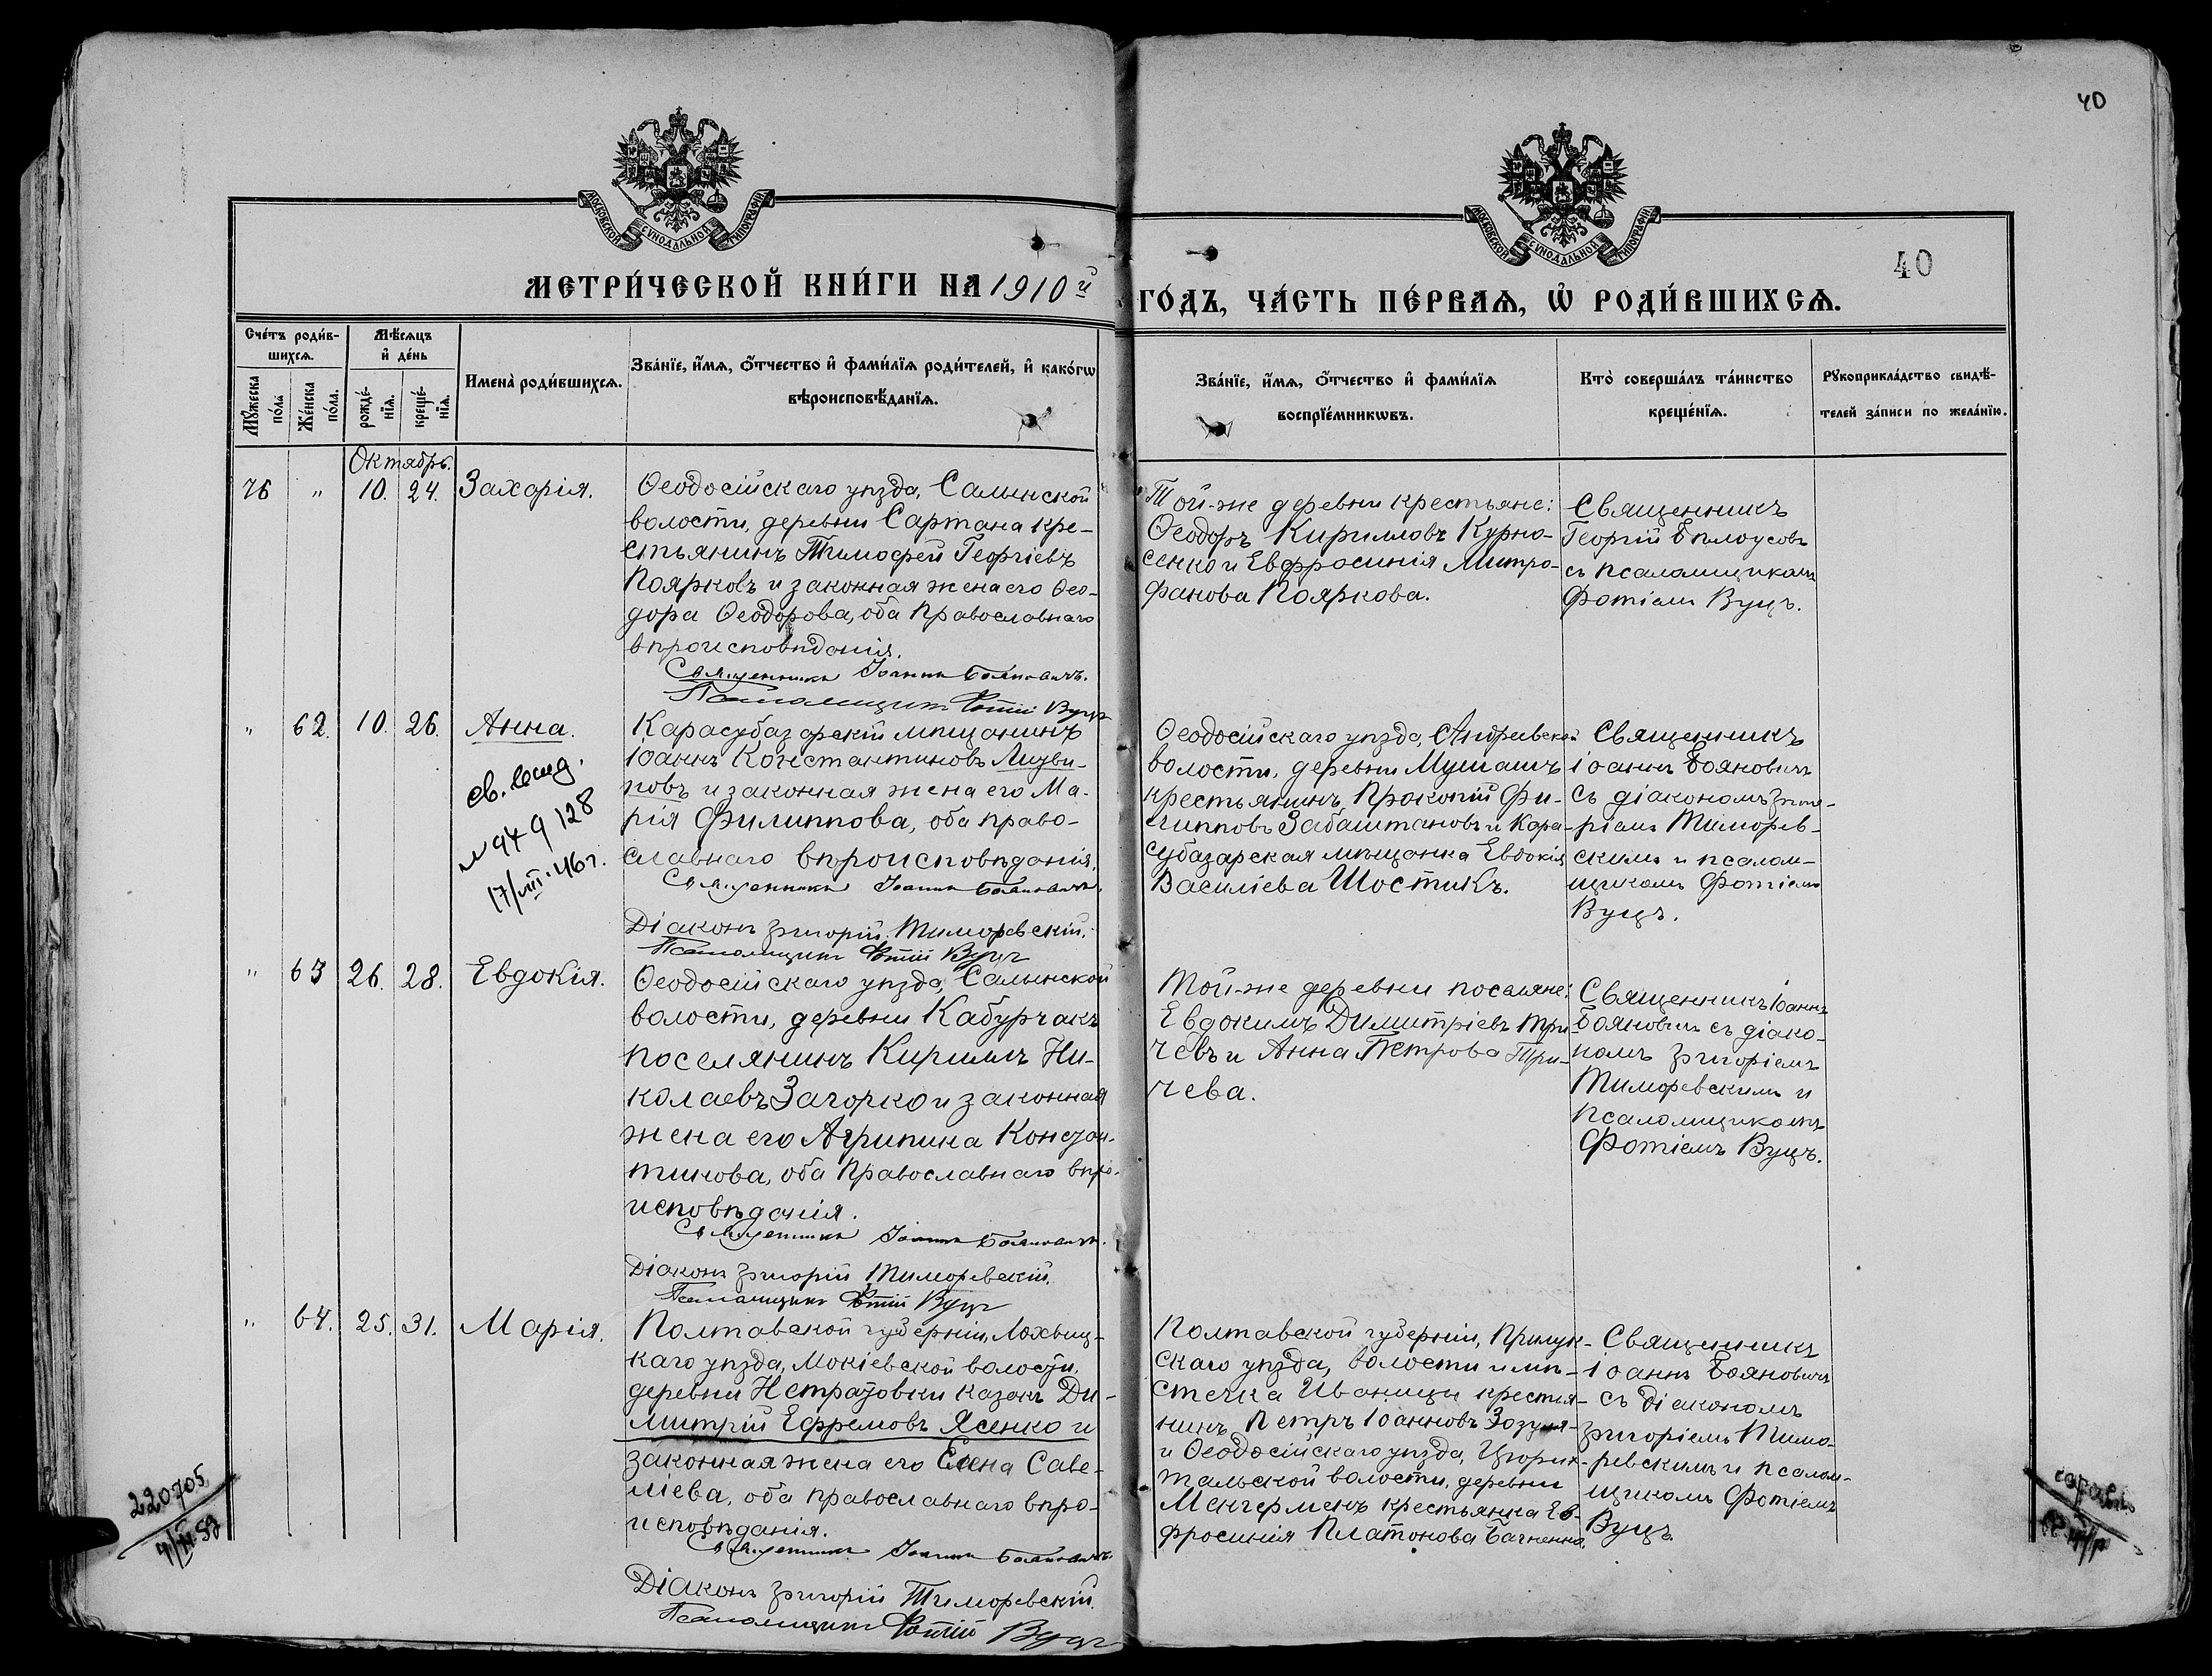 40
МОСКОВСКОЙ СУНОДАЛЬНОЙ ТИПОГРАФІИ
МОСКОВСКОЙ СУНОДАЛЬНОЙ ТИПОГРАФІИ
40
МЕТРИ́ЧЕСКОЙ КНИ́ГИ НА 1910й ГО́ДЪ, ЧА́СТЬ ПЕ́РВАѦ, Ѡ҆ РОДИ́ВШИХСѦ.
Сче́тъ роди́в-
шихсѧ.
Мꙋ́жеска по́ла
Же́нска по́ла.
Мѣ́сѧцъ
и҆ де́нь
рожде́-
нїѧ.
креще́-
нїѧ.
Имена̀ роди́вшихсѧ.
Зва́нїе, и҆́мѧ, ѻ҆́тчество и҆ фами́лїѧ роди́телей, и҆ како́гѡ
вѣроисповѣ́данїѧ.
Зва́нїе, и҆́мѧ, ѻ҆́тчество и҆ фами́лїѧ
воспрїе́мникѡвъ.
Кто̀ соверша́лъ та́инство
креще́нїѧ.
Рꙋкоприкла́дство свидѣ́-
телей за́писи по жела́нїю.
Октябрь.
76 " 10. 24. Захарія.
Ѳеодосійскаго уѣзда, Салынской
волости, деревни Сартана кре-
стьянинъ Тимофей Георгіевъ
Поярковъ и законная жена его Ѳео-
дора Ѳеодорова, оба Православнаго
вѣроисповѣданія.
Священникъ Іоаннъ Бояновичъ.
Псаломщикъ Фотій Вуцъ
Той-же деревни крестьяне:
Ѳеодоръ Кирилловъ Курно-
сенко и Евфросинія Митро-
фанова Пояркова.
Священникъ
Георгій Бѣлоусовъ
съ псаломщикомъ
Фотіемъ Вуцъ.
" 62. 10. 26. Анна.
св. выд.
№ 949128
17/VIII-46 г.
Карасубазарскій мѣщанинъ
Іоаннъ Константиновъ Лизви-
новъ и законная жена его Ма-
рія Филиппова, оба право-
славнаго вѣроисповѣданія.
Священникъ Іоаннъ Бояновичъ.
Діаконъ Григорій Тиморевскій.
Псаломщикъ Фотій Вуцъ
Ѳеодосійскаго уѣзда, Андреевской
волости, деревни Мушашъ
крестьянинъ Прокопій Фи-
липповъ Забаштановъ и Кара-
субазарская мѣщанка Евдокія
Василіева Шостикъ.
Священникъ
Іоаннъ Бояновичъ
съ діакономъ Григо-
ріемъ Тиморев-
скимъ и псалом-
щикомъ Фотіемъ
Вуцъ.
" 63 26. 28. Евдокія.
Ѳеодосійскаго уѣзда, Салынской
волости, деревни Кабурчакъ
поселянинъ Кириллъ Ни-
колаевъ Загорко и законная
жена его Агрипина Констан-
тинова, оба Православнаго вѣро-
исповѣданія.
Священникъ Іоаннъ Бояновичъ.
Діаконъ Григорій Тиморевскій.
Псаломщикъ Фотій Вуцъ
Той-же деревни поселяне:
Евдокимъ Димитріевъ Три-
чевъ и Анна Петрова Три-
чева.
Священникъ Іоаннъ
Бояновичъ съ діако-
номъ Григоріемъ
Тиморевскимъ и
псаломщикомъ
Фотіемъ Вуцъ.
" 64. 25. 31. Марія.
Полтавской губерніи, Лохвиц-
каго уѣзда, Мокіевской волости,
деревни Нетратовки казакъ Ди-
митрій Ефремовъ Ясенко и
законная жена его Елена Саве-
ліева, оба православнаго вѣро-
исповѣданія.
Священникъ Іоаннъ Бояновичъ.
Діаконъ Григорій Тиморевскій.
Псаломщикъ Фотій Вуцъ
Полтавской губерніи, Прилук-
скаго уѣзда, волости и мѣ-
стечка Иваницы крестья-
нинъ Петръ Іоанновъ Зозуля
и Ѳеодосійскаго уѣзда, Цюрих-
тальской волости, деревни
Менгерменъ крестьянка Ев-
фросинія Платонова Багненко.
Священникъ
Іоаннъ Бояновичъ
съ діакономъ
Григоріемъ Тимо-
ревскимъ и псалом-
щикомъ Фотіемъ
Вуцъ.
220705